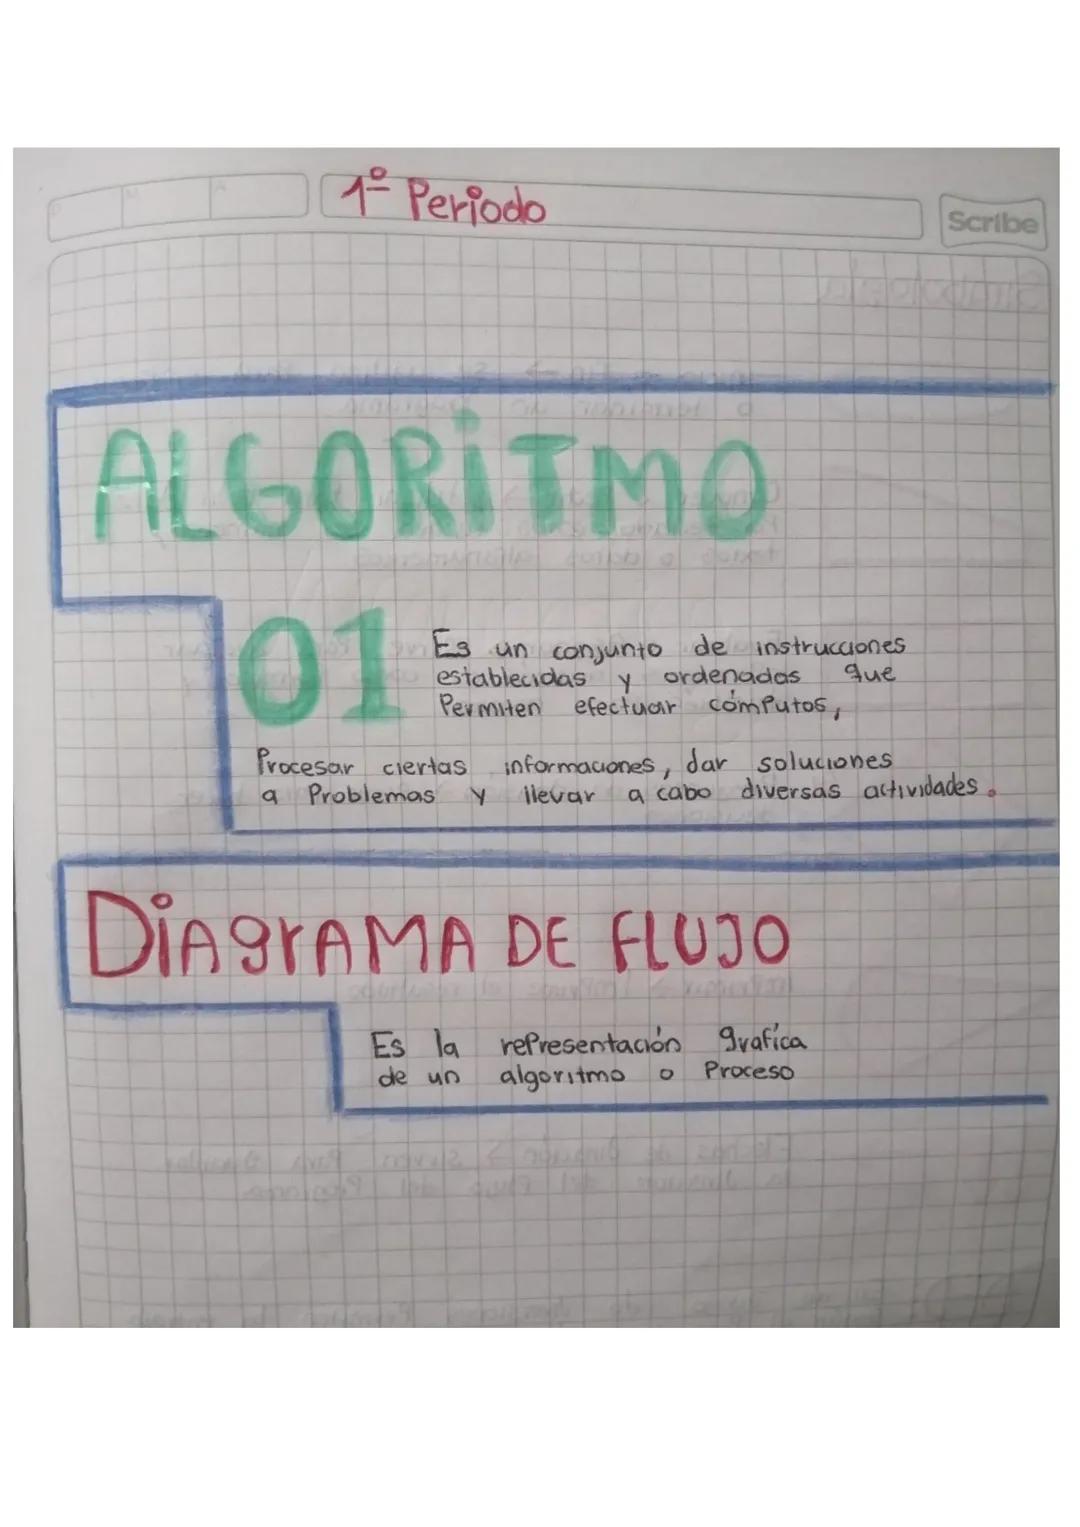 1º Periodo
Scribe
ALGORiTMO
01
Es un conjunto de instrucciones
establecidas y ordenadas que
Permiten efectuar cómputos,
Procesar ciertas informaciones, dar soluciones
a Problemas y llevar a cabo diversas actividades.
DiAgrAMA DE FLUJO
Es la representación grafica
de un algoritmo o Proceso